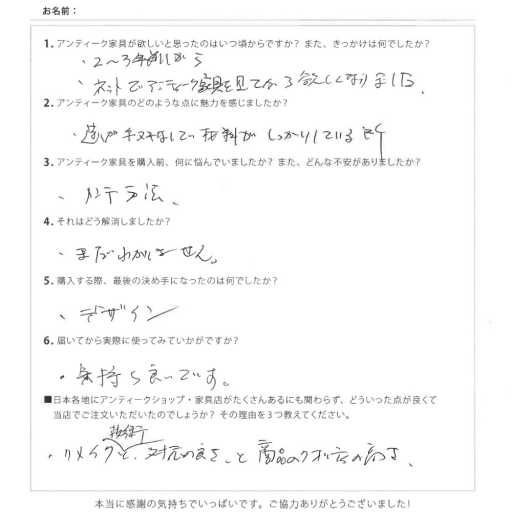 お名前：
1. アンティーク家具が欲しいと思ったのはいつ頃からですか？また、きっかけは何でしたか？
・2〜3年前から
・ネットでアンティーク家具を見てから欲しくなりました。
2. アンティーク家具のどのような点に魅力を感じましたか？
・造りが手ヌキなしで、材料がしっかりしている所
3. アンティーク家具を購入前、何に悩んでいましたか？また、どんな不安がありましたか？
、方法、
4. それはどう解消しましたか？
・まだわかりません。
5. 購入する際、最後の決め手になったのは何でしたか？
、デザイン
6. 届いてから実際に使ってみていかがですか？
・気持ち良いです。
■日本各地にアンティークショップ・家具店がたくさんあるにも関わらず、どういった点が良くて
当店でご注文いただいたのでしょうか？その理由を3つ教えてください。
技術
・リメイクと、対応の良さ、と商品のクオリティの高さ、
本当に感謝の気持ちでいっぱいです。ご協力ありがとうございました！